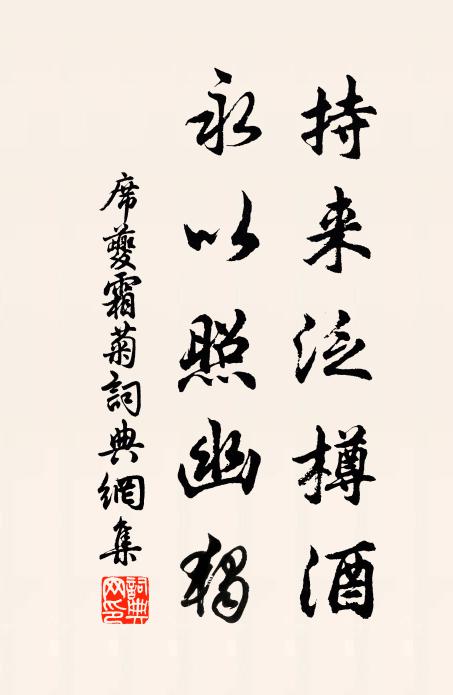 持来泛樽酒
永以照幽独
席夔霜菊詞典網集
詞典網印